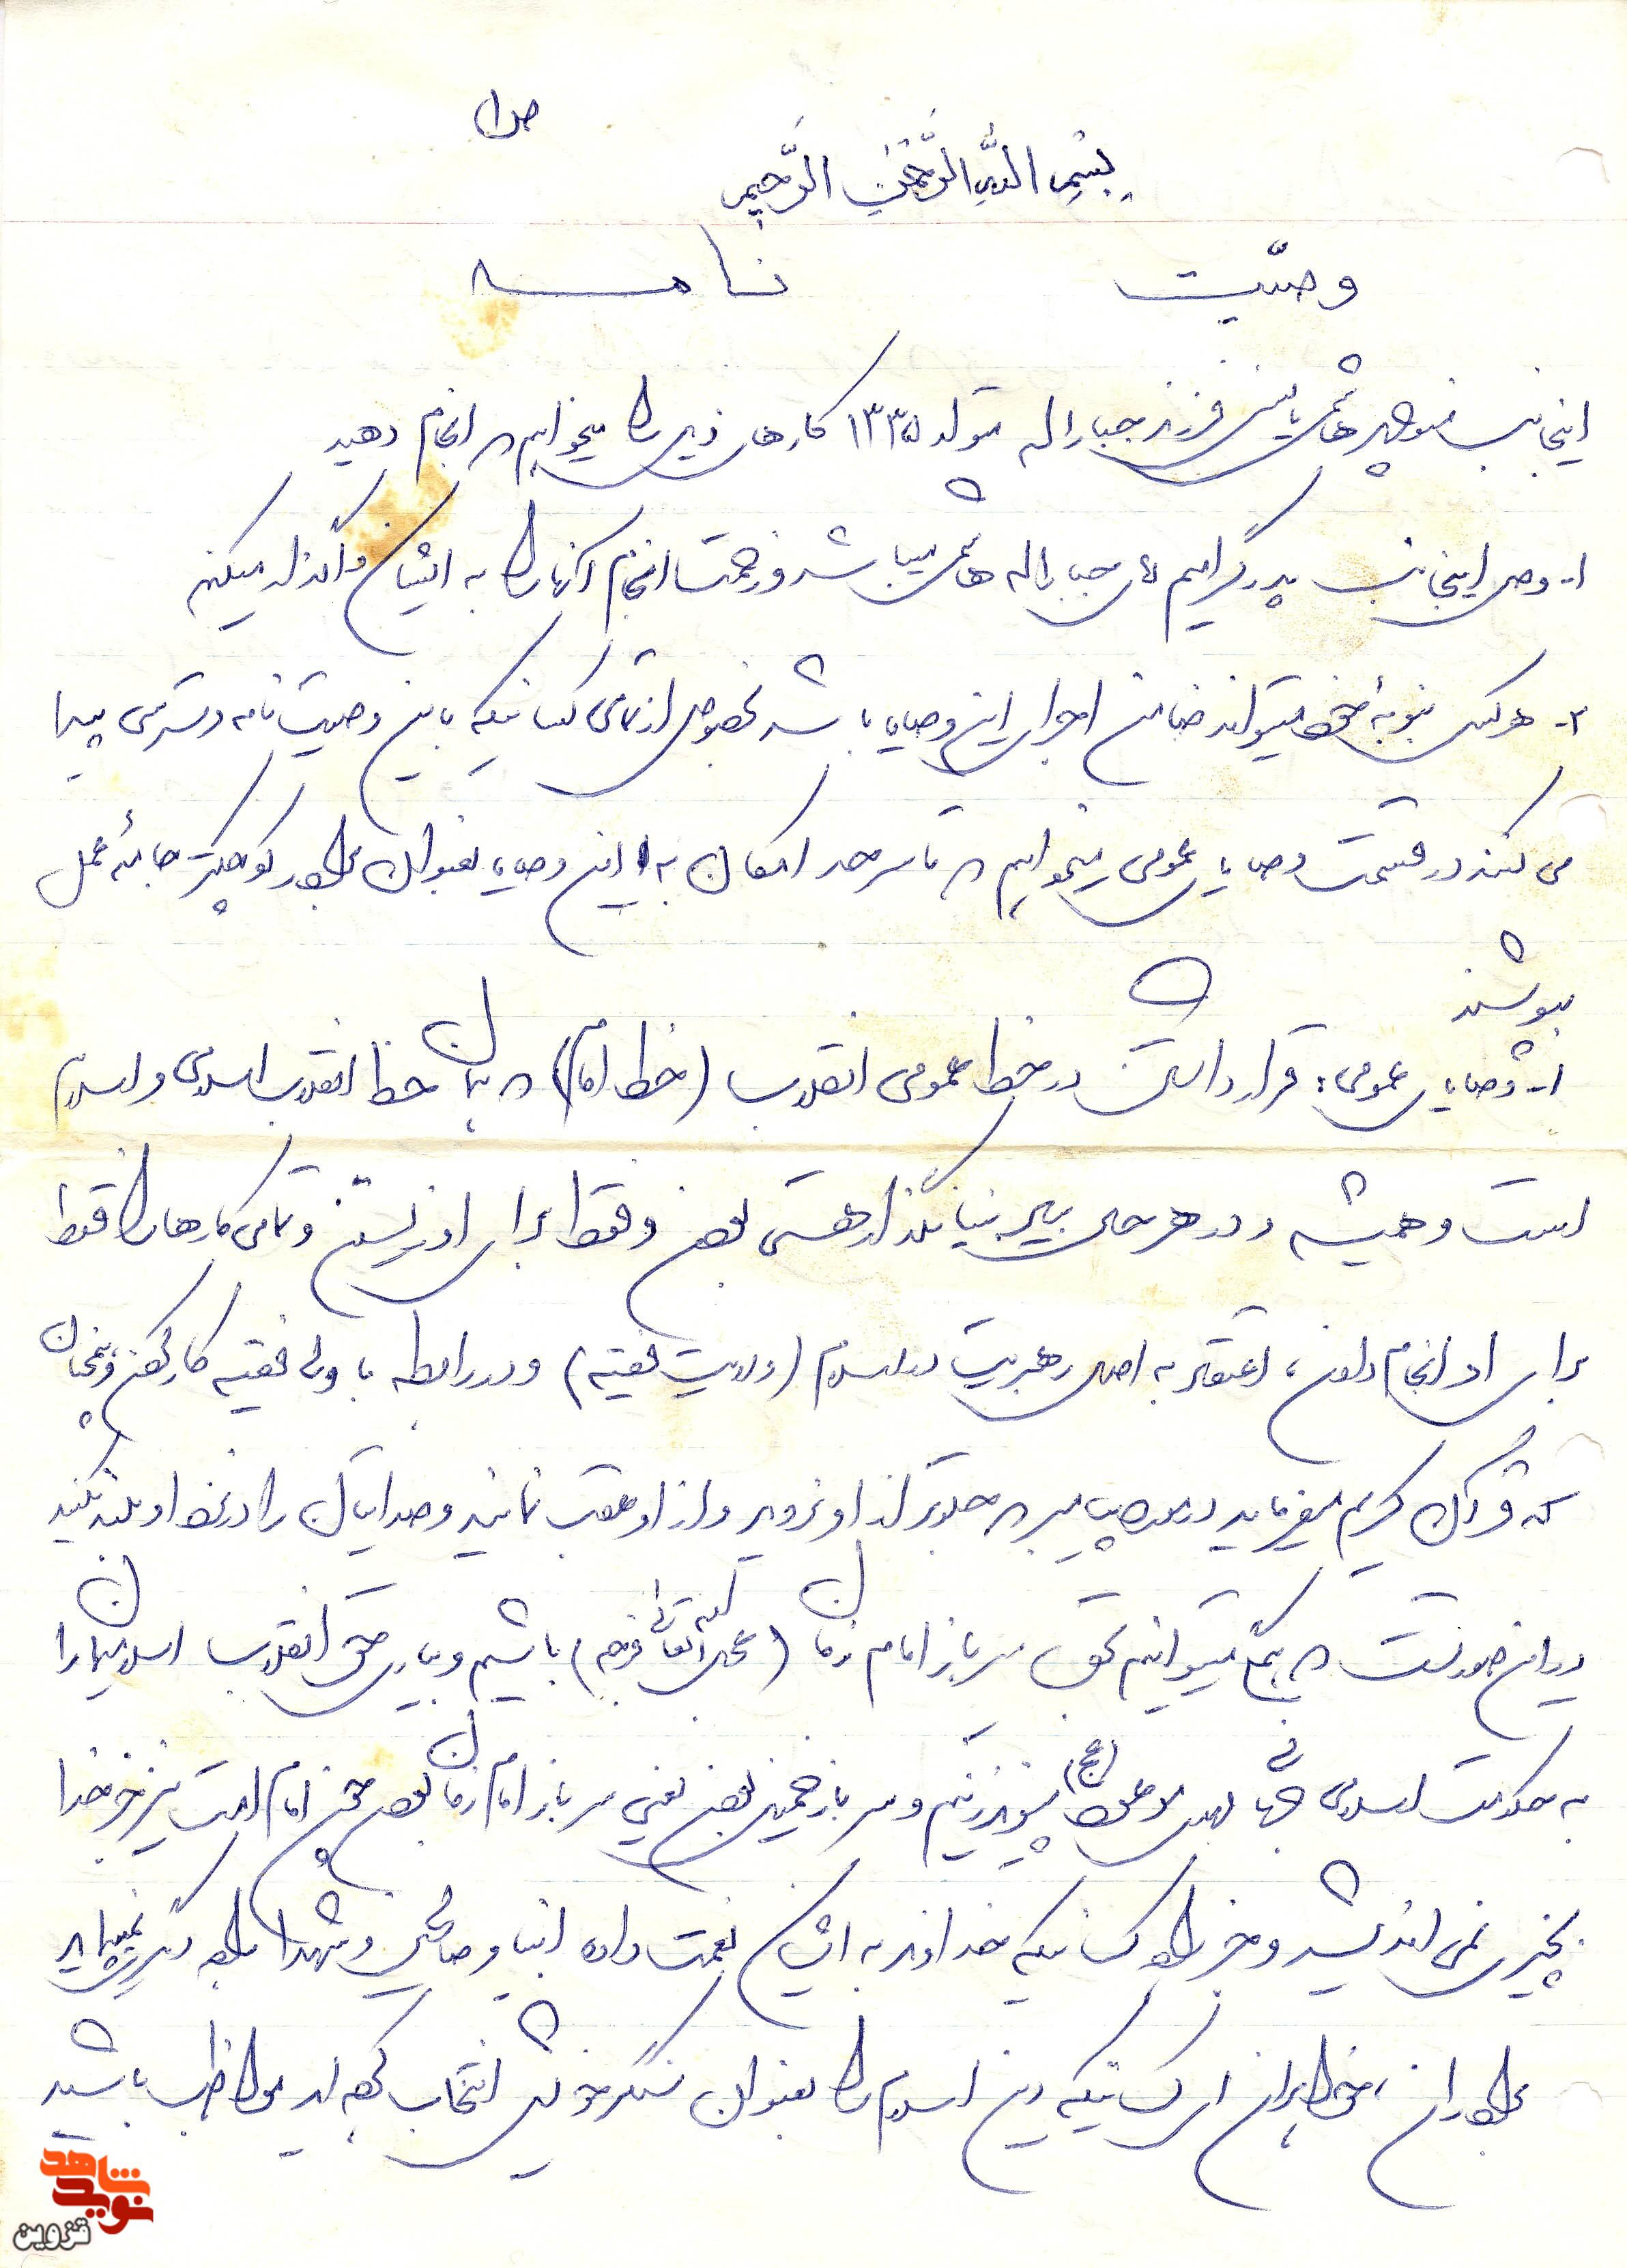 ص ۱
بِسْمِ اللهِ الرَّحْمٰنِ الرَّحیمِ
وصیّت نامه
اینجانب منوچهر هاشمی فرزند جبار اله متولد ۱۳۳۵ کارهای زیر را میخواهم که انجام دهید
۱- وصی اینجانب پدر گرامیم جبار اله هاشمی میباشد و زحمت انجام آنها را به ایشان واگذار میکنم
۲- هر کس بنوبهٔ خود میتواند ضامن اجرای این وصایا باشد بخصوص از تمامی کسانیکه باین وصیت نامه دسترسی پیدا
می کنند در قسمت وصایای عمومی میخواهم که تا سر حد امکان به این وصایا بعنوان برادر کوچکتر جامهٔ عمل
بپوشند
۱- وصایای عمومی: قرار داشتن در خط عمومی انقلاب (خط امام) که همان خط انقلاب اسلامی و اسلام
است و همیشه و در هر حال بیاد بنیانگذار هستی بودن و فقط برای او زیستن و تمامی کارها را فقط
برای او انجام دادن، اعتقاد به اصل رهبریت در اسلام (ولایت فقیه) و در رابطه با ولی فقیه کار کردن و همچنان
که قرآن کریم میفرماید درباره پیامبر که جلوتر از او نروید و از او عقب نمانید و صدایتان را در نزد او بلند نکنید
در این صورتست که همگی میتوانیم بحق سرباز امام زمان (عجل الله تعالی فرجه) باشیم و بیاری حق انقلاب اسلامیمان را
به حکومت اسلامی جهانی مهدی موعود (عج) پیوند زنیم و سرباز خمینی بودن یعنی سرباز امام زمان بودن چون امام امت نیز جز خدا
بچیزی نمی اندیشد و جز راه کسانیکه خداوند به ایشان نعمت داده انبیاء و صالحین و شهدا راه دیگری نمیپیماید
برادران، خواهران ای کسانیکه دین اسلام را بعنوان سنگر خویش انتخاب کرده اید مواظب باشید
نوید شاهد
قزوین